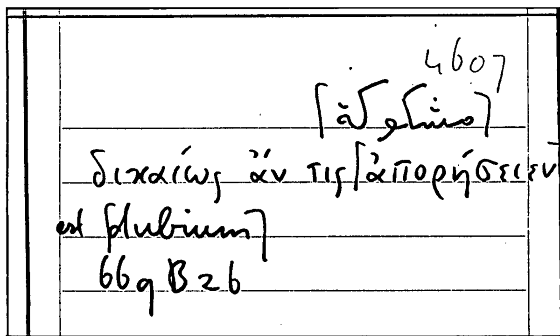 4607
δικαίως ἄν τις [ἀπορήσειεν
est dubium]
669 B 26